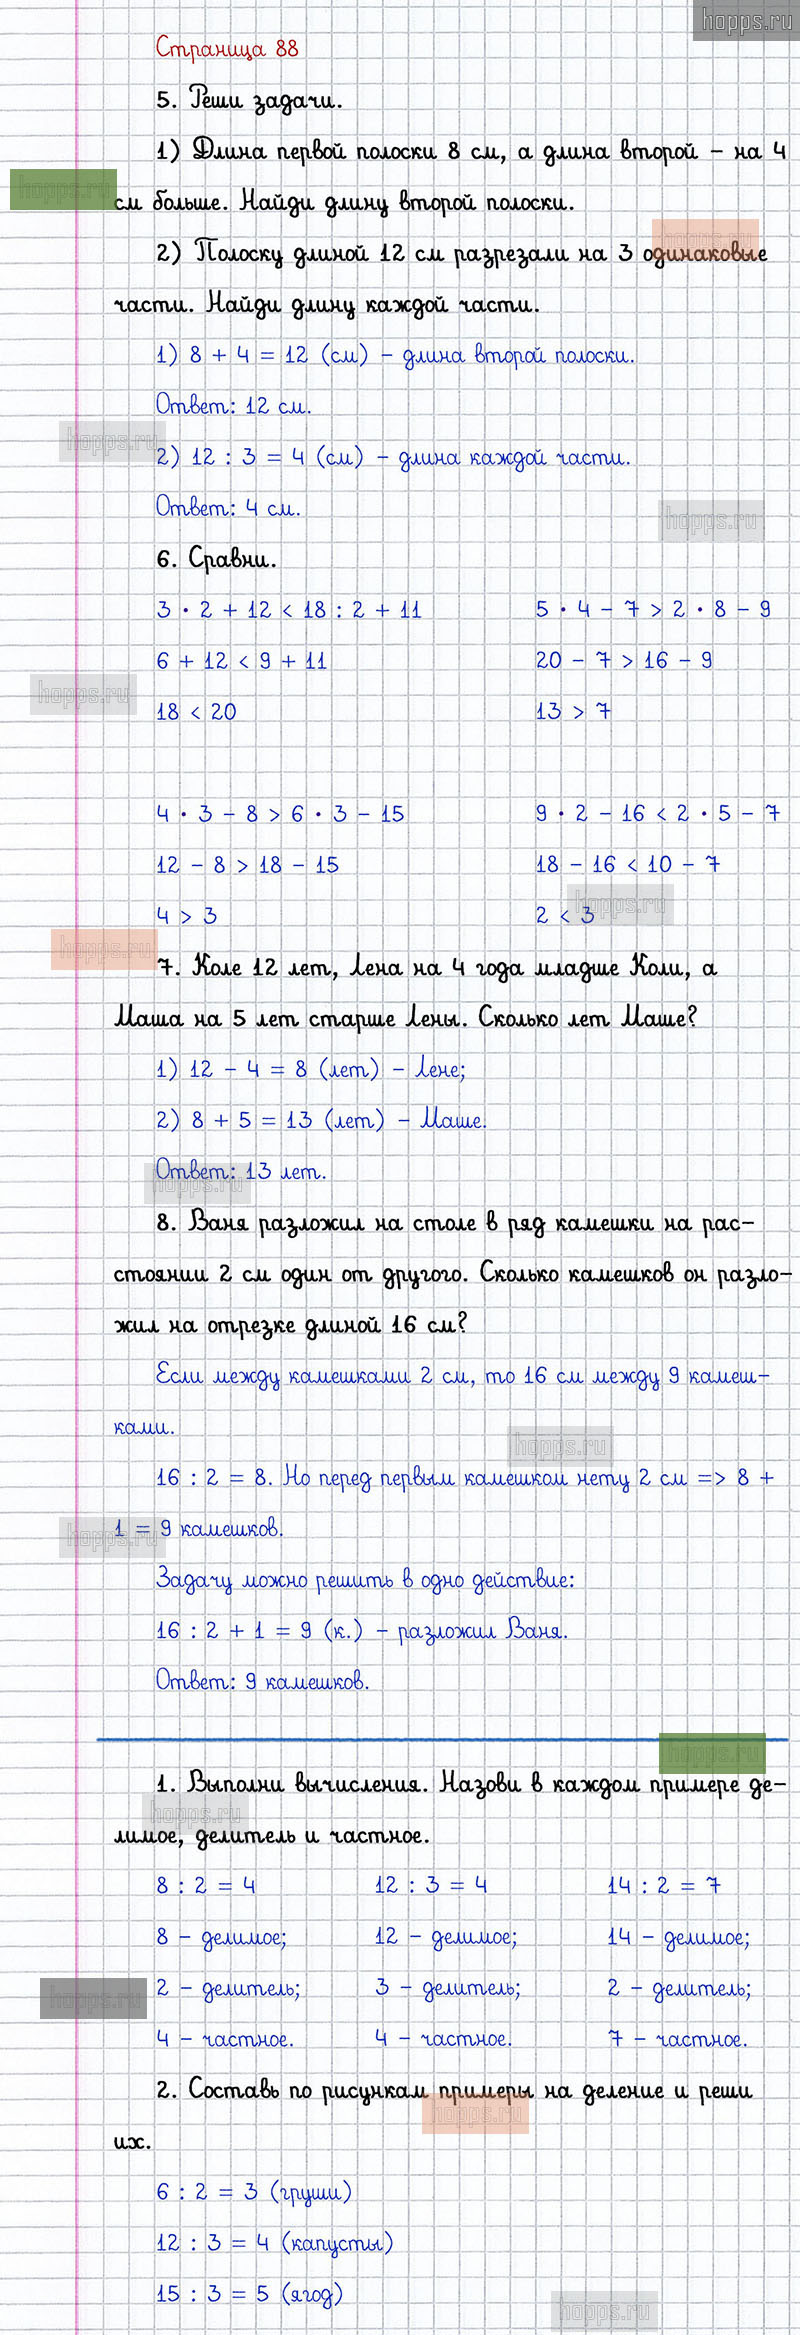 hopps.ru
Страница 88
5. Реши задачи.
1) Длина первой полоски 8 см, а длина второй – на 4
hopps.ru
см больше. Найди длину второй полоски.
hopps.ru
2) Полоску длиной 12 см разрезали на 3 одинаковые
части. Найди длину каждой части.
1) 8 + 4 = 12 (см) – длина второй полоски.
Ответ: 12 см.
hopps.ru
2) 12 : 3 = 4 (см) – длина каждой части.
Ответ: 4 см.
hopps.ru
6. Сравни.
3 · 2 + 12 < 18 : 2 + 11 5 · 4 – 7 > 2 · 8 – 9
6 + 12 < 9 + 11 20 – 7 > 16 – 9
hopps.ru
18 < 20 13 > 7
4 · 3 – 8 > 6 · 3 – 15 9 · 2 – 16 < 2 · 5 – 7
12 – 8 > 18 – 15 18 – 16 < 10 – 7
hopps.ru
4 > 3 2 < 3
hopps.ru
7. Коле 12 лет, Лена на 4 года младше Коли, а
Маша на 5 лет старше Лены. Сколько лет Маше?
1) 12 – 4 = 8 (лет) – Лене;
2) 8 + 5 = 13 (лет) – Маше.
Ответ: 13 лет.
hopps.ru
8. Ваня разложил на столе в ряд камешки на рас–
стоянии 2 см один от другого. Сколько камешков он разло–
жил на отрезке длиной 16 см?
Если между камешками 2 см, то 16 см между 9 камеш–
ками.
hopps.ru
16 : 2 = 8. Но перед первым камешком нету 2 см => 8 +
1 = 9 камешков.
hopps.ru
Задачу можно решить в одно действие:
16 : 2 + 1 = 9 (к.) – разложил Ваня.
Ответ: 9 камешков.
hopps.ru
1. Выполни вычисления. Назови в каждом примере де–
hopps.ru
лимое, делитель и частное.
8 : 2 = 4 12 : 3 = 4 14 : 2 = 7
8 – делимое; 12 – делимое; 14 – делимое;
2 – делитель; 3 – делитель; 2 – делитель;
hopps.ru
4 – частное. 4 – частное. 7 – частное.
2. Составь по рисункам примеры на деление и реши
hopps.ru
их.
6 : 2 = 3 (груши)
12 : 3 = 4 (капусты)
15 : 3 = 5 (ягод)
hopps.ru